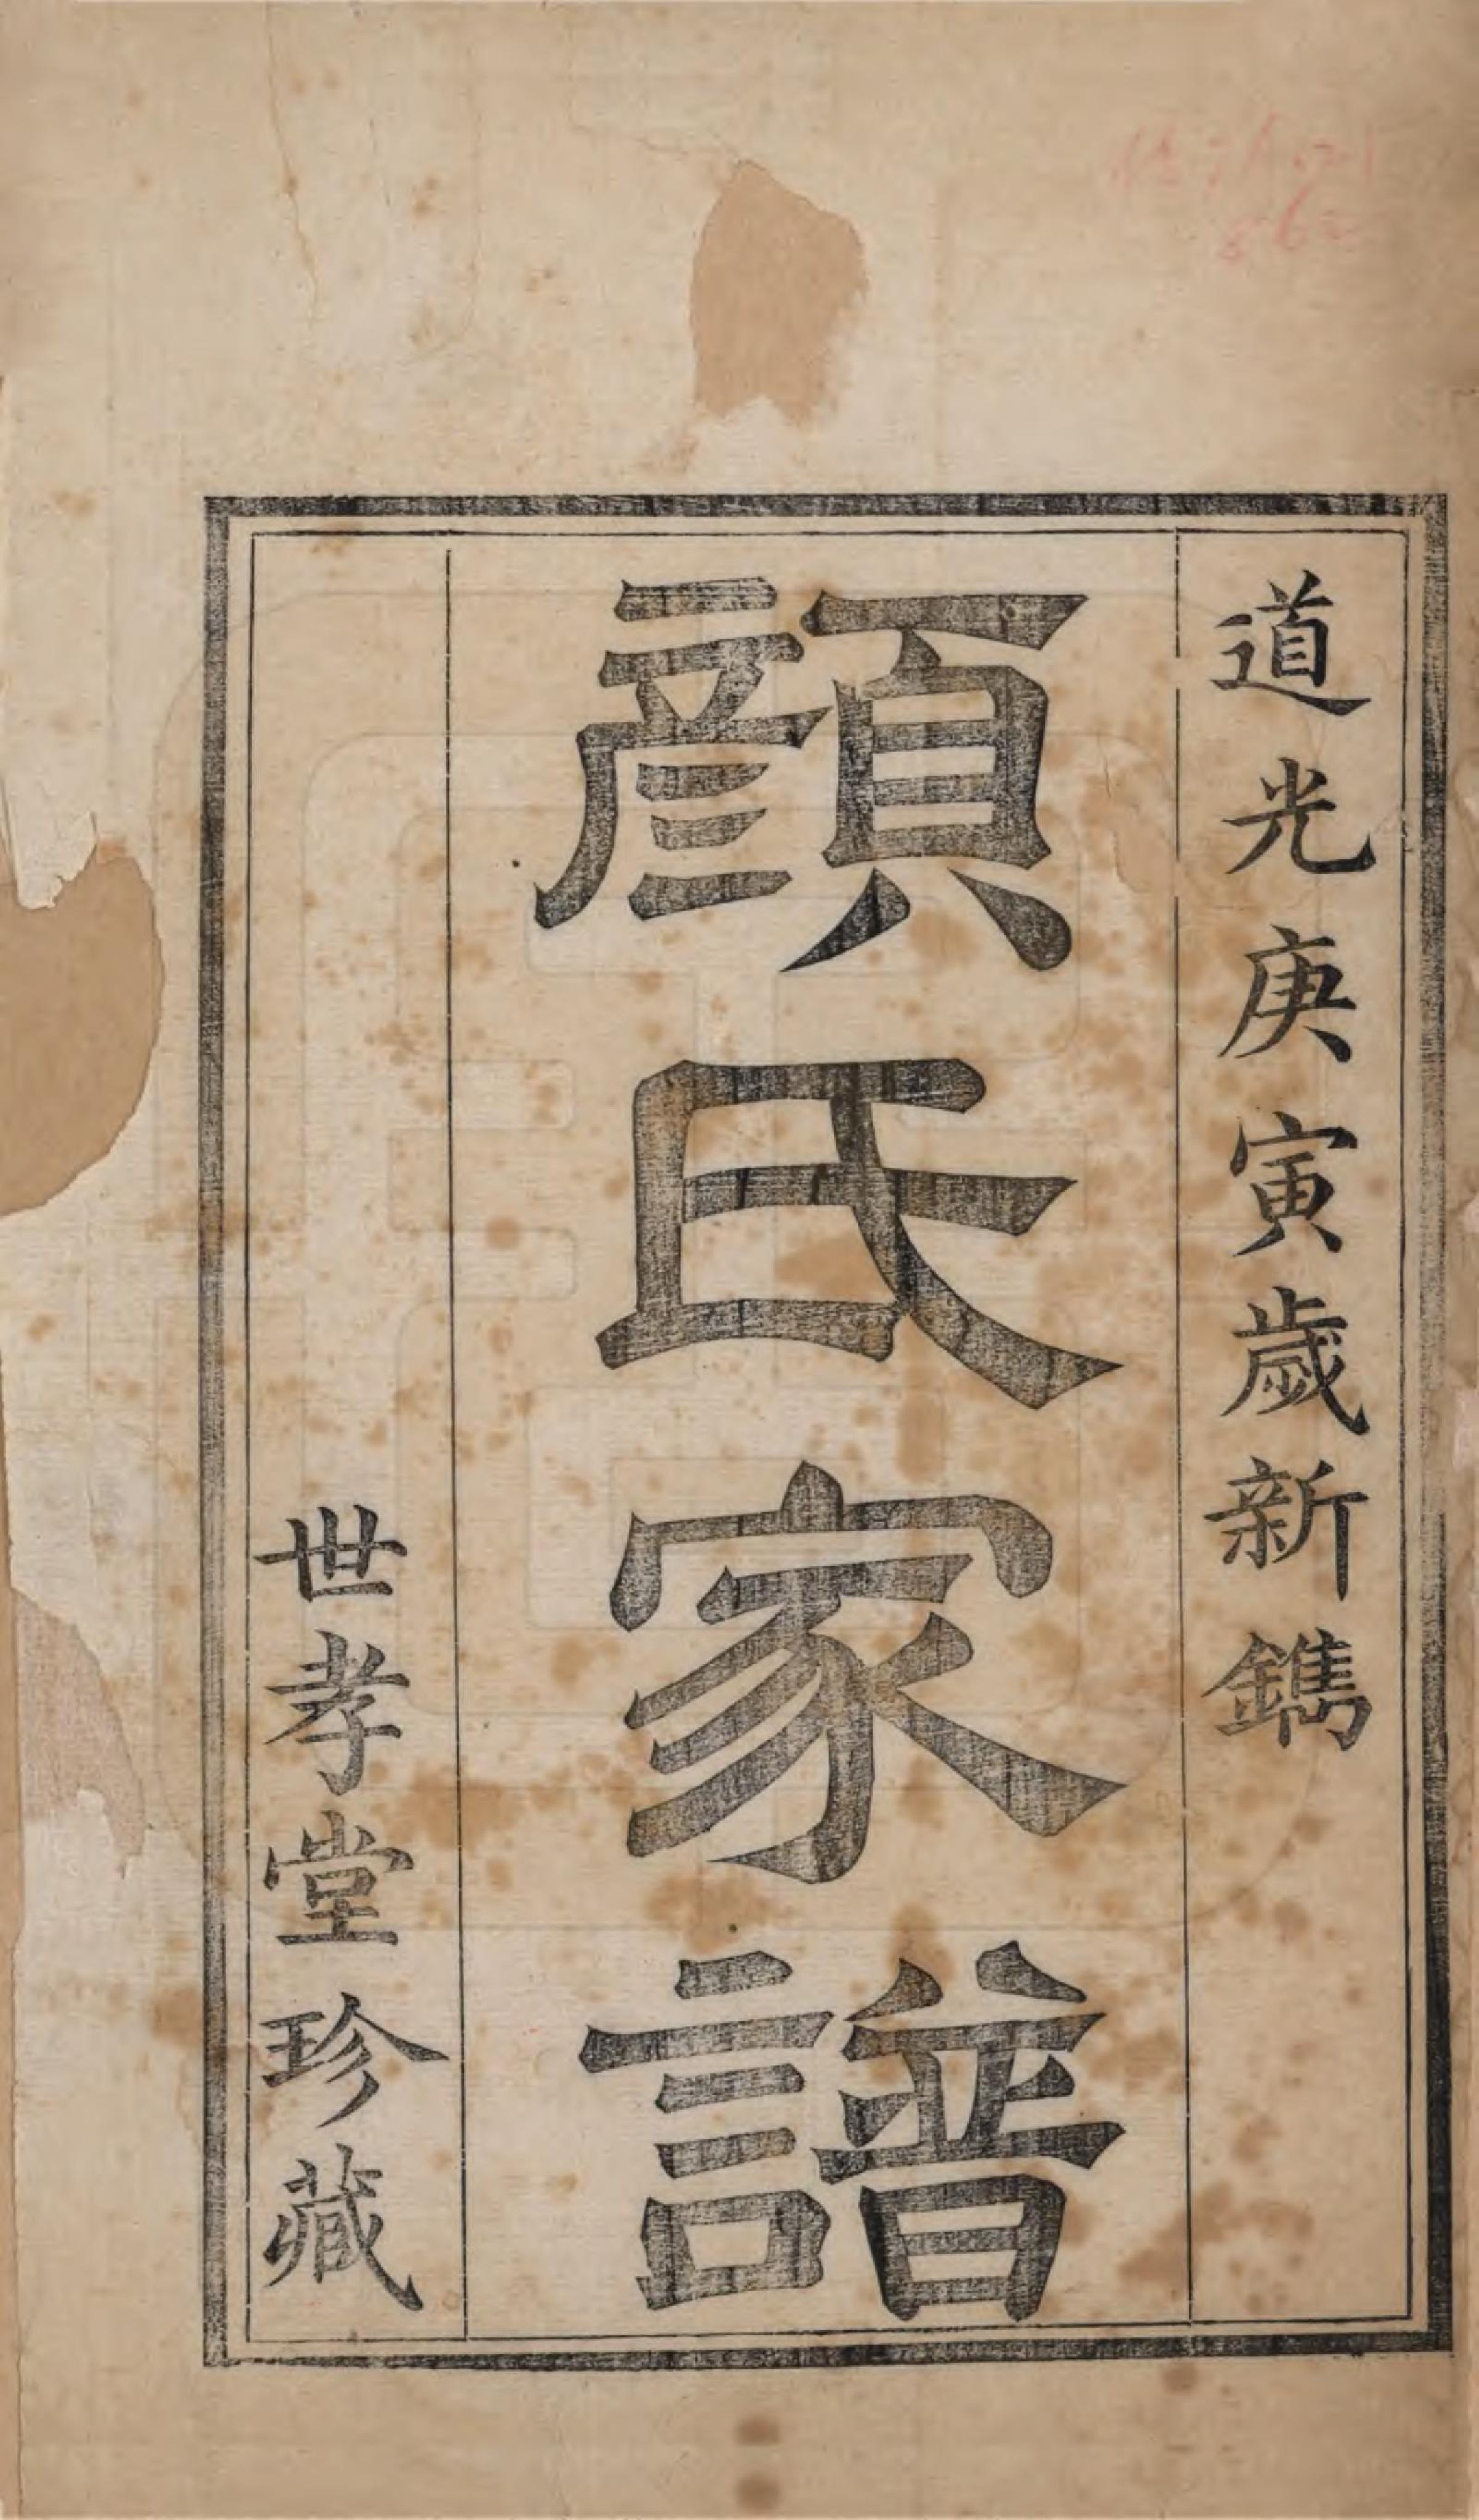 道光庚寅歲新鐫
顏氏家譜
世孝堂珍藏